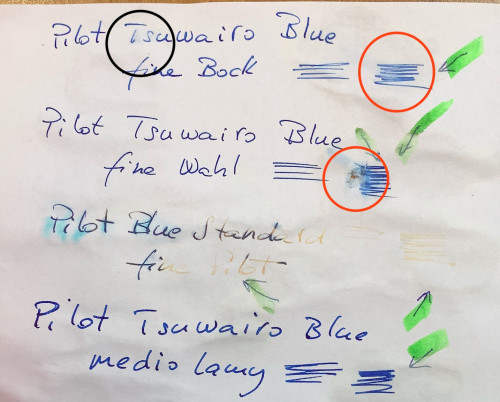 Pilot Tsuwairo Blue
fine Bock
Pilot Tsuwairo Blue
fine Wahl
Pilot Blue Standard
fine Pilot
Pilot Tsuwairo Blue
medio lamy